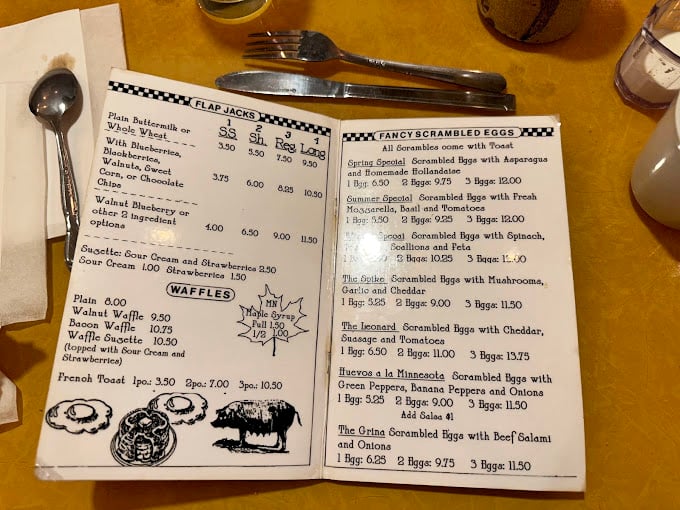 FLAP JACKS
1 2 3 4
S.S. Sh. Reg. Long
Plain Buttermilk or
Whole Wheat 3.50 5.50 7.50 9.50
With Blueberries,
Blackberries,
Walnuts, Sweet
Corn, or Chocolate
Chips 3.75 6.00 8.25 10.50
Walnut Blueberry or
other 2 ingredient
options 4.00 6.50 9.00 11.50
Suzette: Sour Cream and Strawberries 2.50
Sour Cream 1.00 Strawberries 1.50
WAFFLES
Plain 8.00
Walnut Waffle 9.50
Bacon Waffle 10.75
Waffle Suzette 10.50
(topped with Sour Cream and
Strawberries)
MN
Maple Syrup
Full 1.50
1/2 1.00
French Toast 1pc.: 3.50 2pc.: 7.00 3pc.: 10.50
FANCY SCRAMBLED EGGS
All Scrambles come with Toast
Spring Special Scrambled Eggs with Asparagus
and Homemade Hollandaise
1 Egg: 6.50 2 Eggs: 9.75 3 Eggs: 12.00
Summer Special Scrambled Eggs with Fresh
Mozzarella, Basil and Tomatoes
1 Egg: 5.50 2 Eggs: 9.25 3 Eggs: 12.00
Scrambled Eggs with Spinach,
Scallions and Feta
2 Eggs: 10.25 3 Eggs:
The Spike Scrambled Eggs with Mushrooms,
Garlic and Cheddar
1 Egg: 5.25 2 Eggs: 9.00 3 Eggs: 11.50
The Leonard Scrambled Eggs with Cheddar,
Suasage and Tomatoes
1 Egg: 6.50 2 Eggs: 11.00 3 Eggs: 13.75
Huevos a la Minnesota Scrambled Eggs with
Green Peppers, Banana Peppers and Onions
1 Egg: 5.25 2 Eggs: 9.00 3 Eggs: 11.50
Add Salsa $1
The Grina Scrambled Eggs with Beef Salami
and Onions
1 Egg: 6.25 2 Eggs: 9.75 3 Eggs: 11.50